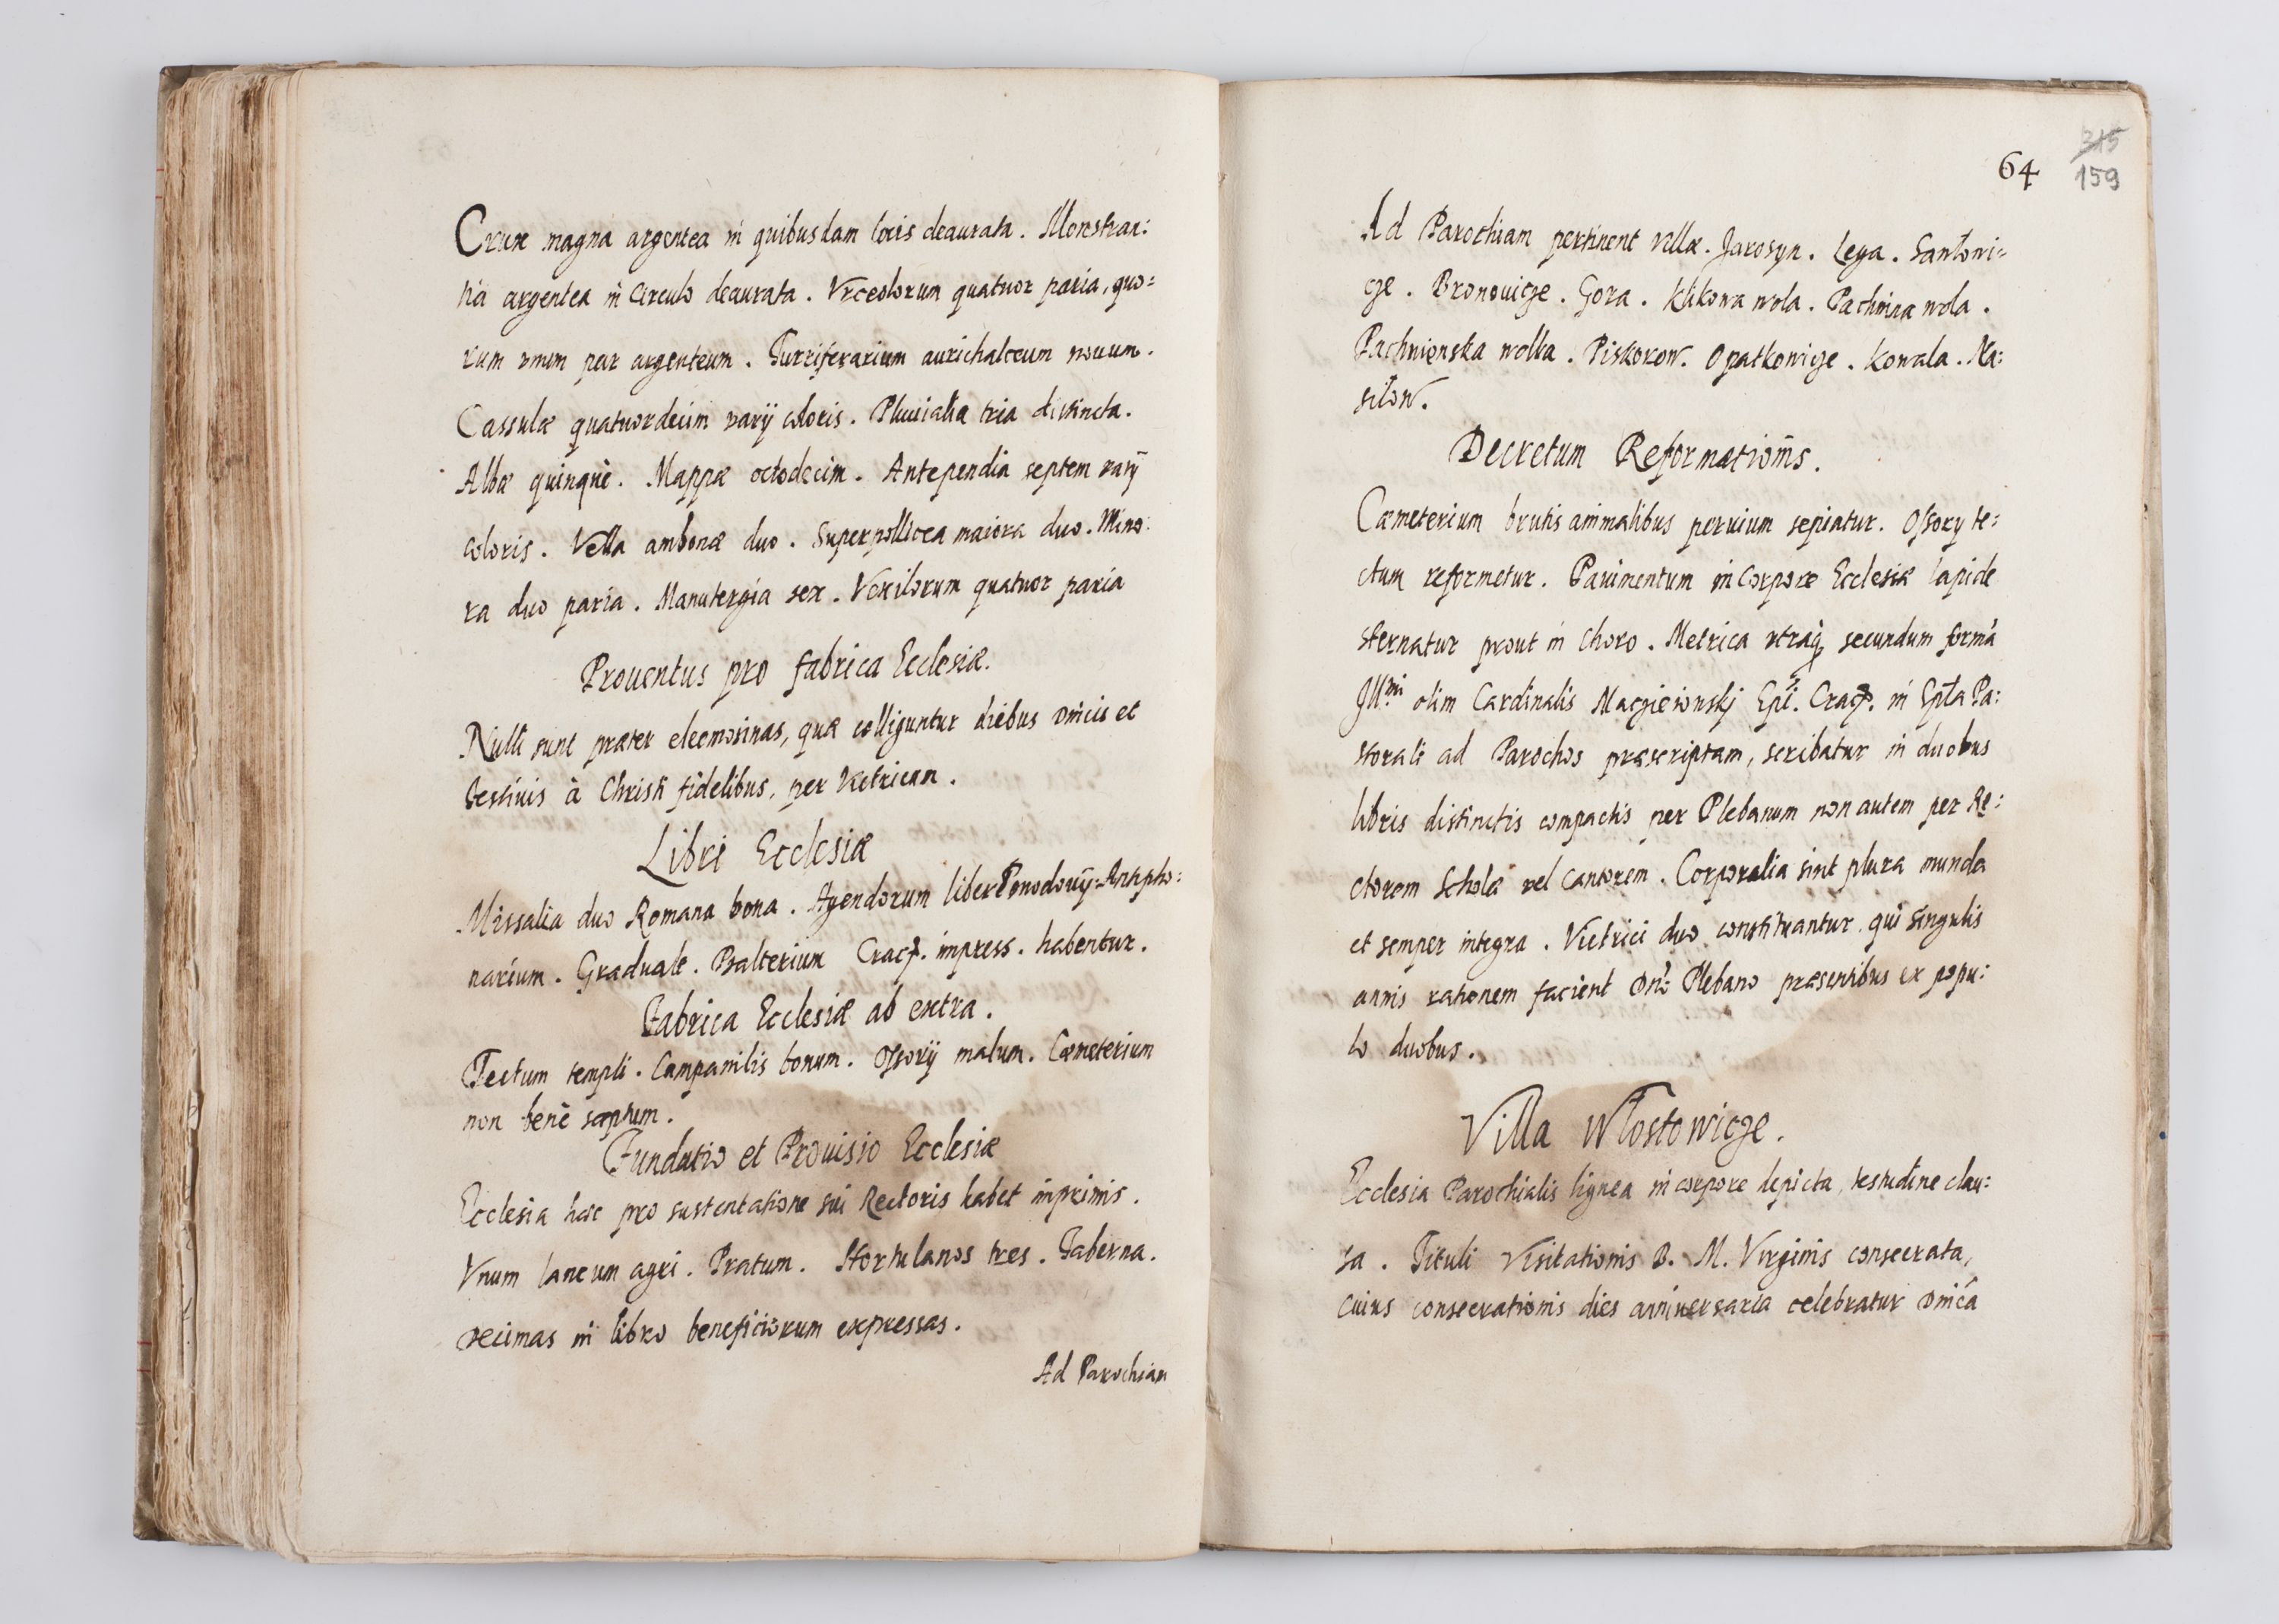 Crux magna argentea in quibusdam locis deaurata. Monstran:
tia argentea in circulo deaurata. Vrceolorum quatuor paria, quo=
rum vnum par argenteum. Turriferarium aurichalceum nouum.
Cassulæ quatuordecim varÿ coloris. Pluuialia tria distincta.
Albæ quinquè. Mappæ octodecim. Antependia septem varÿ
coloris. Vella ambonæ duo. Superpellicea maiora duo. Mino:
ra duo paria. Manutergia sex. Vexilorum quatuor paria
Prouentus pro fabrica Ecclesiæ.
Nulli sunt præter eleemosinas, quæ colliguntur diebus Dnicis et
festiuis à Christi fidelibus, per Vitricum.
Libri Ecclesiæ
Missalia duo Romana bona. Agendorum liber Antipho:
narium. Graduale. Psalterium Crac. impress. habentur.
Fabrica Ecclesiæ ab extra.
Tectum templi. Campanilis bonum. Ossorÿ malum. Cœmeterium
non benè septum.
Fundatio et Prouisio Ecclesiæ
Ecclesia hæc pro sustentatione sui Rectoris habet inprimis.
Vnum laneum agri. Pratum. Hortulanos tres. Taberna.
Decimas in libro beneficiorum expressas.
Ad Parochiam
64
315
159
Ad Parochiam pertinent villæ. Jarosyn. Lega. Santowi=
cze. Bronouicze. Gora. Klikowa wola. Pachnina wola.
Pachnienska wolla. Piskorow. Opatkowicze. Kowala. Na:
silow.
Decretum Reformationis.
Cæmeterium brutis animalibus peruium sepiatur. Ossorÿ te=
ctum reformetur. Pauimentum in corpore Ecclesiæ lapide
sternatur prout in choro. Metrica vtraq; secundum formã
Illmi olim Cardinalis Macieiowskj Epi. Crac. in Epla Pa:
storali ad Parochos præscriptam, scribatur in duobus
libris distinctis compactis per Plebanum non autem per Re:
ctorem Scholæ vel cantorem. Corporalia sint plura munda
et semper integra. Victrici duo constituantur, qui singulis
annis rationem facient Dno Plebano præsentibus ex popu:
lo duobus.
Villa Wlostowicze.
Ecclesia Parochialis lignea in corpore depicta, testudine clau:
sa. Tituli Visitationis B. M. Virginis consecrata,
Cuius consecrationis dies anniuersaria celebratur Dnica